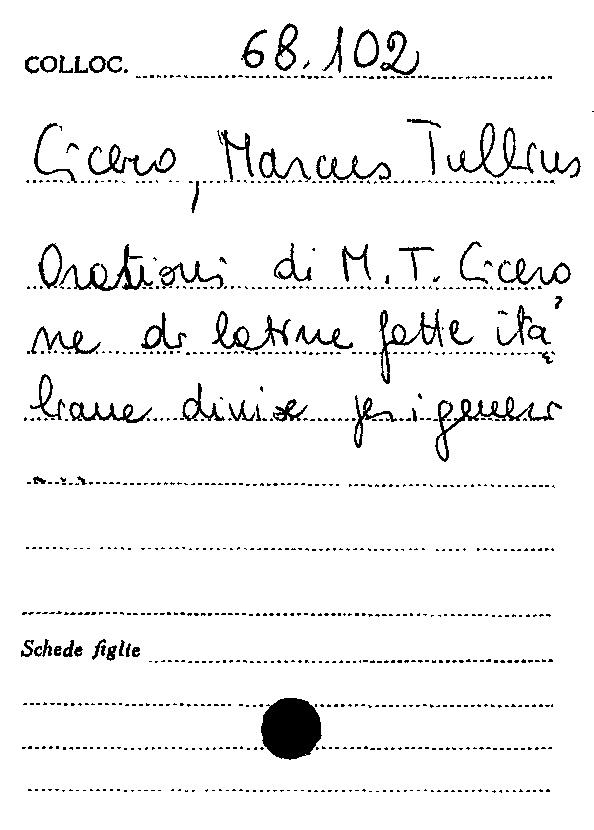 COLLOC. 68.102
Cicero, Marcus Tullius
Orationi di M. T. Cicero
ne di latine fatte ita
liane divise per i generi
...
Schede figlie